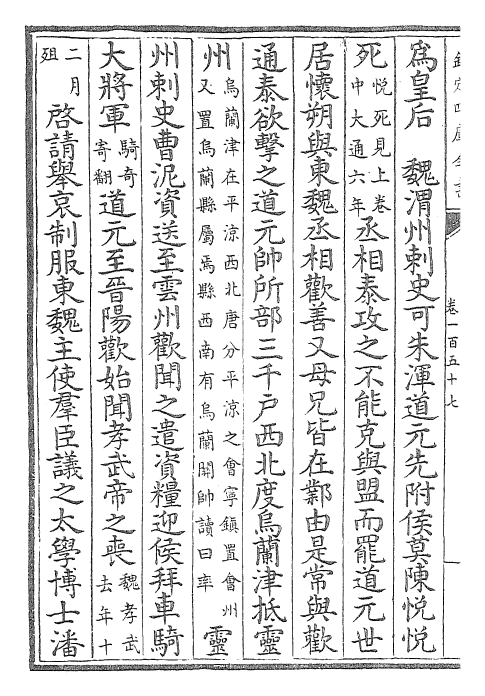 欽定四庫全書
卷一百五十七
爲皇后　魏渭州刺史可朱渾道元先附侯莫陳悦悦
死悦死見上卷中大通六年丞相泰攻之不能克與盟而罷道元世
居懷朔與東魏丞相歡善又母兄皆在鄴由是常與歡
通泰欲擊之道元帥所部三千戶西北度烏蘭津抵靈
州烏蘭津在平涼西北唐分平涼之會寧鎮置會州又置烏蘭縣屬焉縣西南有烏蘭關帥讀曰率靈
州刺史曹泥資送至雲州歡聞之遣資糧迎候拜車騎
大將軍騎奇寄翻道元至晉陽歡始聞孝武帝之喪魏孝武去年十
二月殂啓請舉哀制服東魏主使羣臣議之太學博士潘